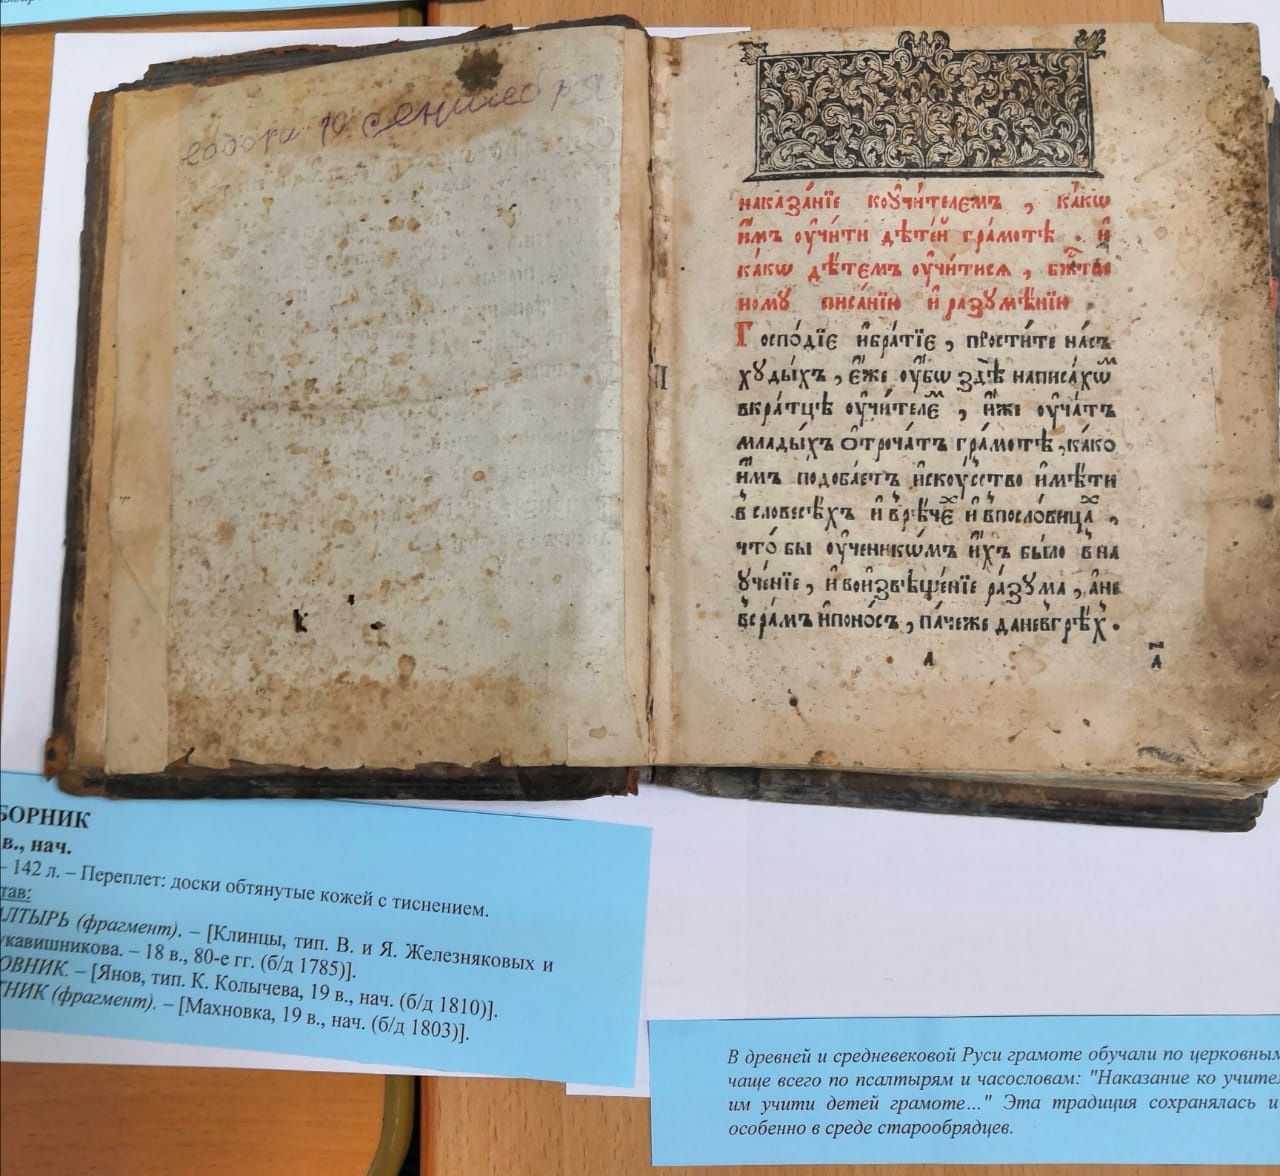 сентября
наказа́нїе коᲂу҆чи́телємъ , ка́кѡ
и҆̀мъ ᲂу҆чи́ти дѣте́й гра́мотѣ . и҆
ка́кѡ дѣ́темъ ᲂу҆чи́тисѧ ,
номꙋ̀ писа́нїю и҆ разꙋмѣ́нїю .
Госпо́дїє и҆бра́тїє , прости́те на́съ
хꙋды́хъ , є҆́же ᲂу҆́бѡ здѣ̀ написа́хѡⷨ
вкра́тцѣ ᲂу҆чи́телєⷨ , и҆́же ᲂу҆́чатъ
млады́хъ ѻ҆троча́тъ гра́мотѣ , ка́ко
и҆̀мъ подоба́етъ и҆скꙋ́сство и҆мѣ́ти
в словесѣ́хъ и҆ в рѣ́чеⷯ и҆ впосло́вицаⷯ ,
что́ бы ᲂу҆ченикѡ́мъ и҆́хъ бы́ло в на
ᲂу҆че́нїе , и҆ воизвѣще́нїе ра́зꙋма , а҆не
всра́мъ и҆поно́съ , па́чеже даневгрѣ́х .
а҃
БОРНИК
в., нач.
– 142 л. – Переплет: доски обтянутые кожей с тиснением.
тав:
АЛТЫРЬ (фрагмент). – [Клинцы, тип. В. и Я. Железняковых и
укавишникова. – 18 в., 80-е гг. (б/д 1785)].
ОВНИК. – [Янов, тип. К. Колычева, 19 в., нач. (б/д 1810)].
НИК (фрагмент). – [Махновка, 19 в., нач. (б/д 1803)].
В древней и средневековой Руси грамоте обучали по церковным
чаще всего по псалтырям и часословам: "Наказание ко учител
им учити детей грамоте..." Эта традиция сохранялась и
особенно в среде старообрядцев.